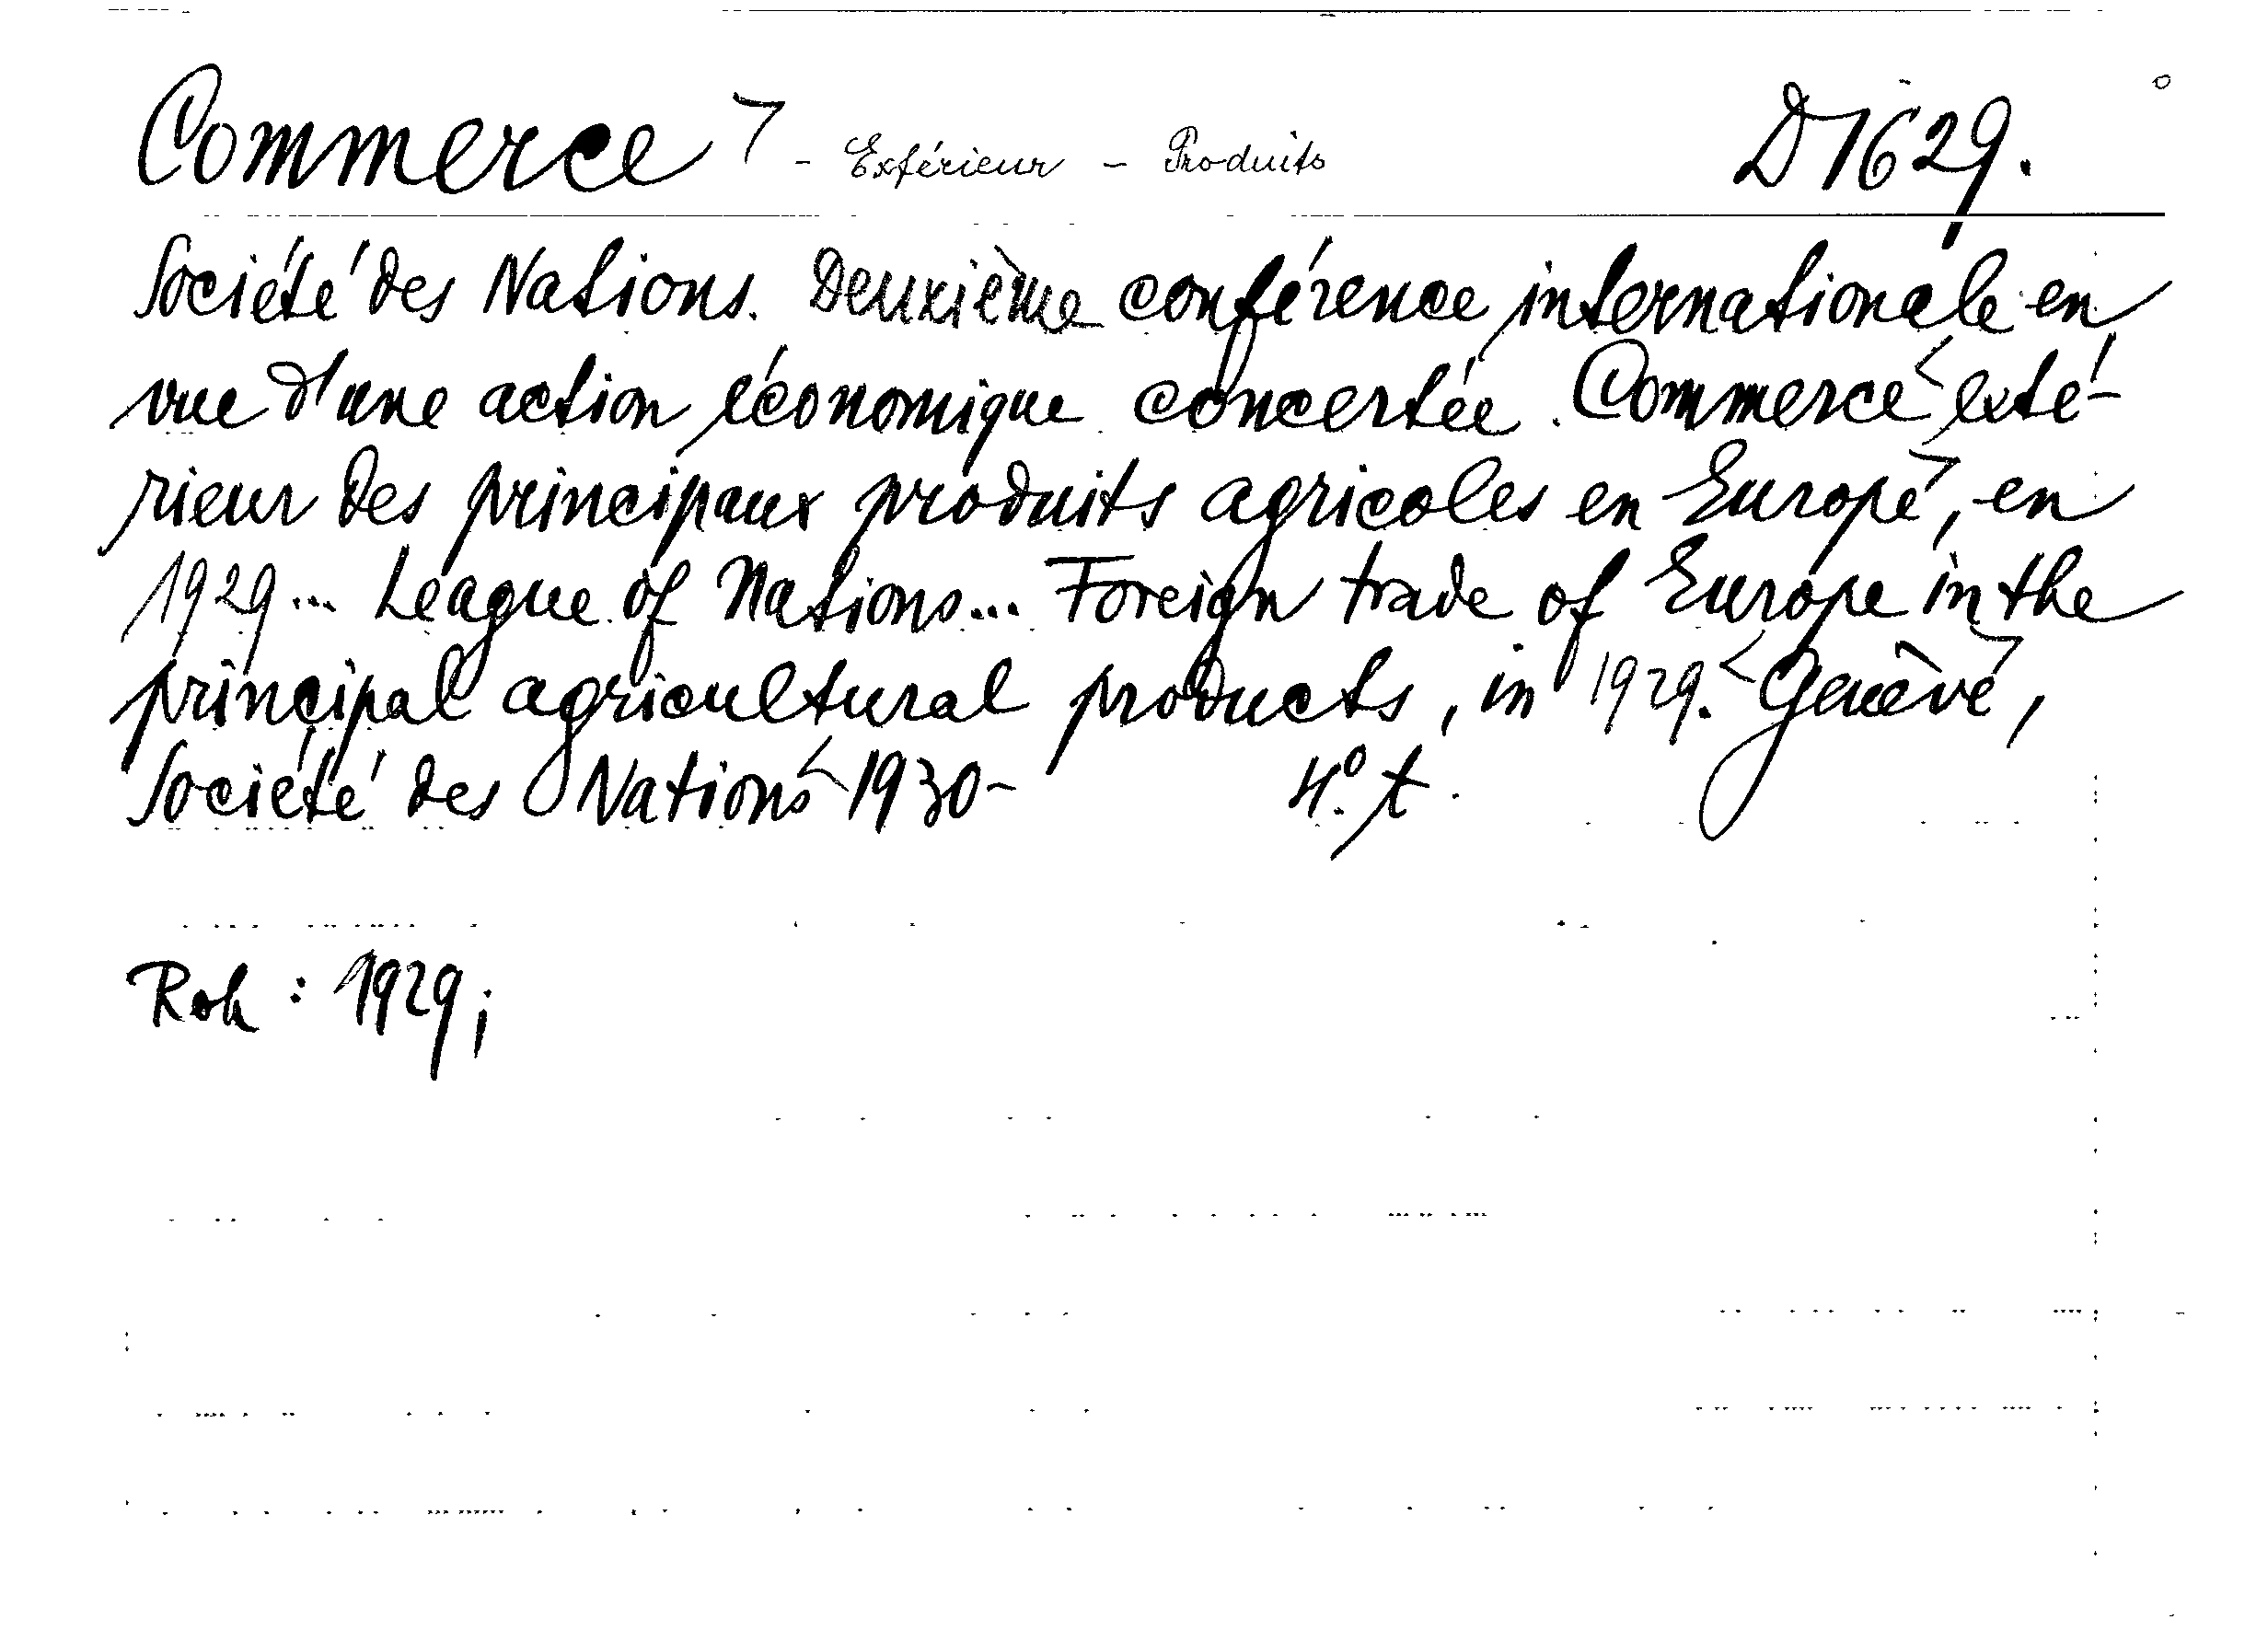 Commerce - Extérieur - Produits D1629.
Société des Nations. Deuxième conférence internationale en
vue d'une action économique concertée. Commerce exté-
rieur des principaux produits agricoles en Europe, en
1929... League of Nations... Foreign trade of Europe in the
principal agricultural products, in 1929. Genève,
Société des Nations 1930- 4º. t.
Rok : 1929;